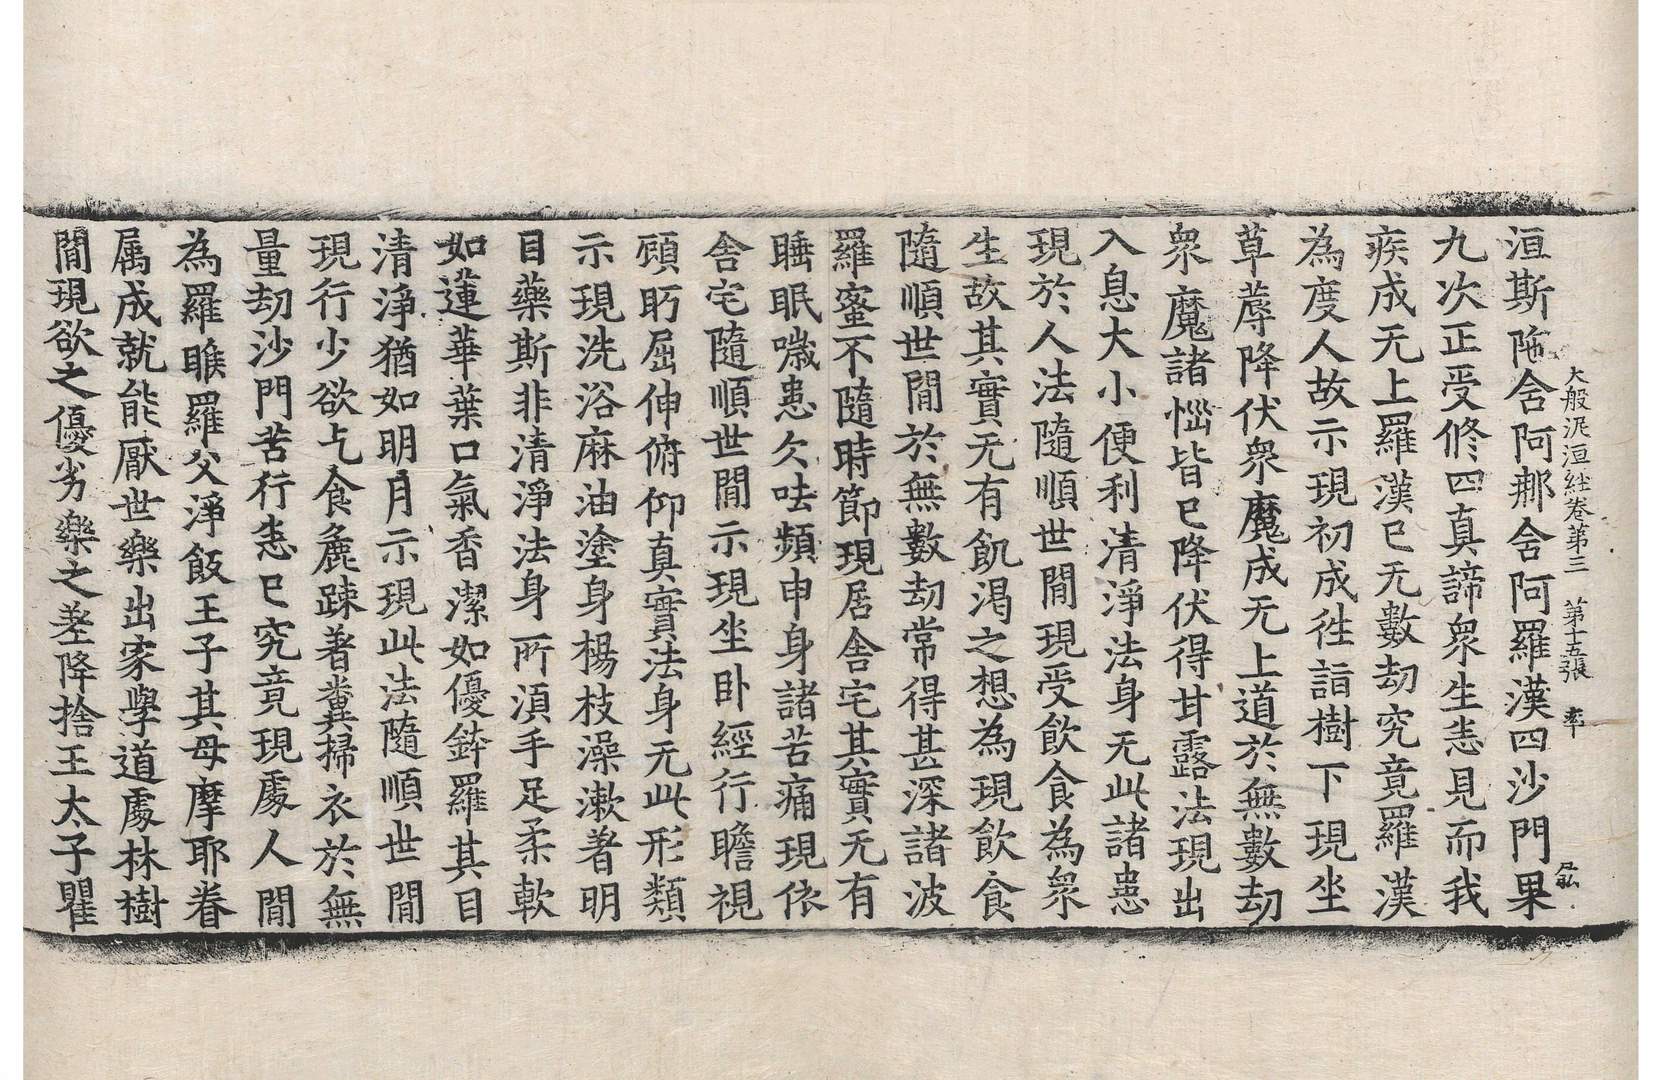 大般泥洹経卷第三 第十五張 率
洹斯陁舍阿𨚗舍阿羅漢四沙門果
九次正受修四真諦衆生恚見而我
疾成无上羅漢已无數劫究竟羅漢
為度人故示現初成徃詣樹下現坐
草蓐降伏衆魔成无上道於無數劫
衆魔諸惱皆已降伏得甘露法現出
入息大小便利清淨法身无此諸患
現於人法隨順世閒現受飲食為衆
生故其實无有飢渴之想為現飲食
隨順世閒於無數劫常得甚深諸波
羅蜜不隨時節現居舍宅其實无有
睡眠噦患欠呿頻申身諸苦痛現依
舍宅隨順世閒示現坐卧經行瞻視
頋眄屈伸俯仰真實法身无此形類
示現洗浴麻油塗身楊枝澡漱著明
目藥斯非清淨法身所湏手足柔軟
如蓮華葉口氣香潔如優鉢羅其目
清淨猶如明月示現此法隨順世閒
現行少欲乞食麁踈著糞掃衣於無
量劫沙門苦行恚已究竟現處人閒
為羅睺羅父淨飯王子其母摩耶眷
属成就能厭世樂出家學道處林樹
閒現欲之優劣樂之差降捨王太子瞿